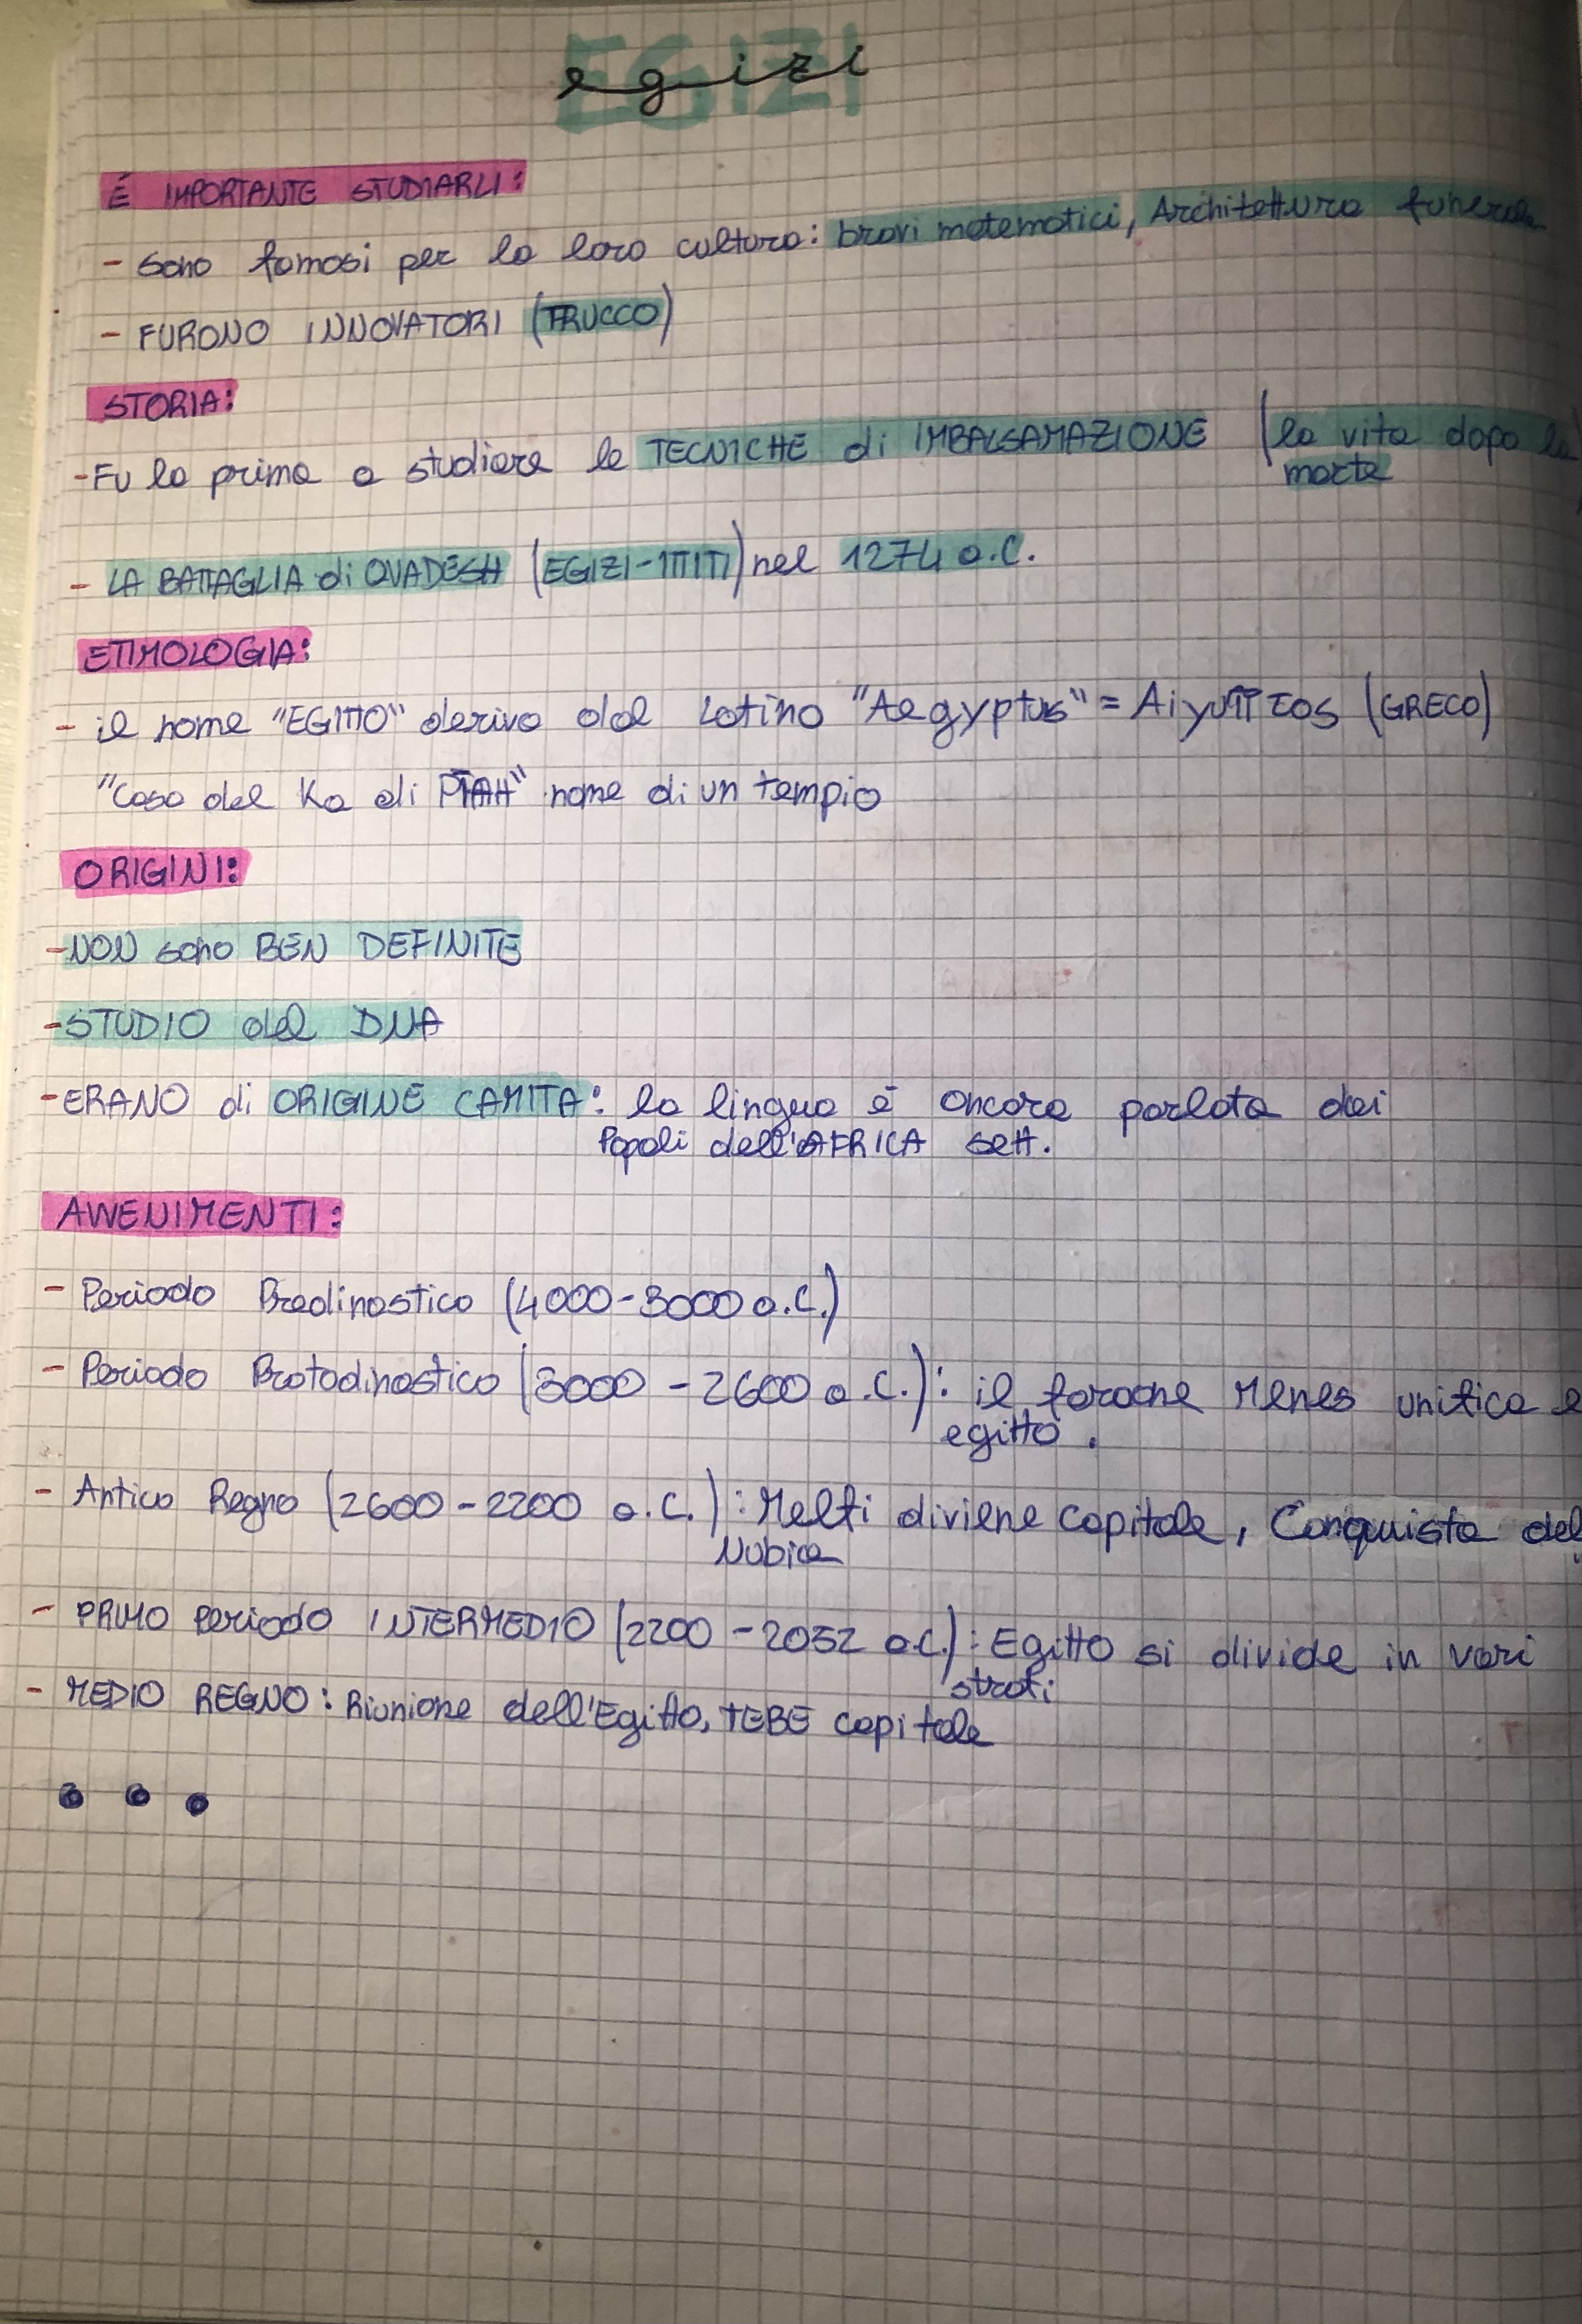 EGIZI
egizi
É IMPORTANTE STUDIARLI:
- sono famosi per la loro cultura: bravi matematici, Architettura funeraria
- FURONO INNOVATORI (TRUCCO)
STORIA:
- Fu la prima a studiare le TECNICHE di IMBALSAMAZIONE (la vita dopo la
morte
- LA BATTAGLIA di QUADESH (EGIZI-ITTITI) nel 1274 a.C.
ETIMOLOGIA:
- il nome "EGITTO" deriva dal Latino "Aegyptus" = Aiγυπτος (GRECO)
"Casa del Ka di PTAH" nome di un tempio
ORIGINI:
- NON sono BEN DEFINITE
- STUDIO del DNA
- ERANO di ORIGINE CAMITA: la lingua è ancora parlata dai
Popoli dell'AFRICA sett.
AVVENIMENTI:
- Periodo Predinastico (4000-3000 a.C.)
- Periodo Protodinastico (3000 - 2600 a.C.): il faraone Menes unifica
egitto.
- Antico Regno (2600 - 2200 a.C.): Melfi diviene capitale, Conquista del
Nubia
- PRIMO Periodo INTERMEDIO (2200 - 2052 a.C.): Egitto si divide in vari
strati
- MEDIO REGNO: Riunione dell'Egitto, TEBE capitale
• • •